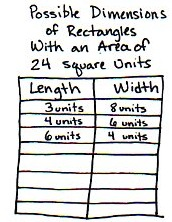 Possible Dimensions
of Rectangles
With an Area of
24 square Units
Length Width
3 units 8 units
4 units 6 units
6 units 4 units